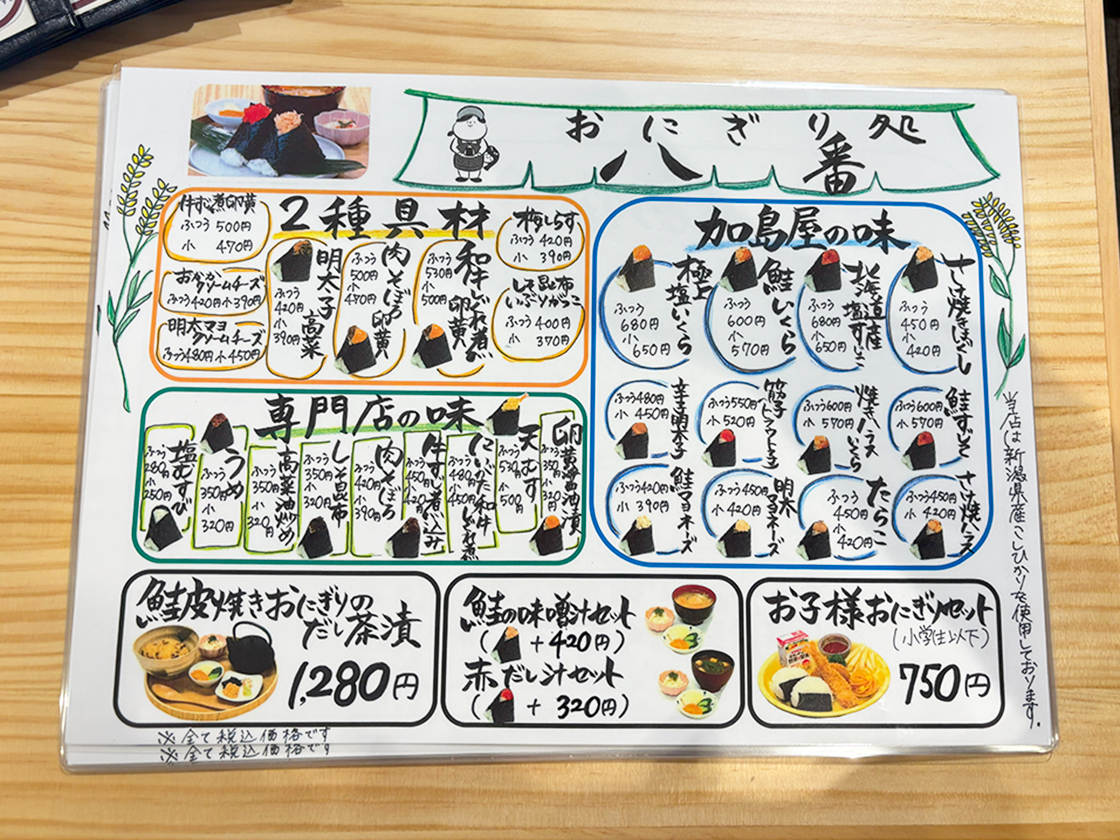 おにぎり処
八番
2種具材
牛すじ煮卵黄
ふつう 500円
小 470円
おかかクリームチーズ
ふつう420円 小390円
明太マヨクリームチーズ
ふつう480円 小450円
明太子高菜
ふつう420円
小390円
肉そぼろ卵黄
ふつう500円
小470円
和牛しぐれ煮
卵黄
ふつう530円
小500円
梅しらす
ふつう 420円
小 390円
しそ昆布
いぶりがっこ
ふつう 400円
小 370円
加島屋の味
極上塩いくら
ふつう680円
小650円
鮭いくら
ふつう600円
小570円
北海道産塩すじこ
ふつう680円
小650円
さけ焼きほぐし
ふつう450円
小420円
辛子明太子
ふつう480円
小450円
筋子(トラウト子)
ふつう550円
小520円
焼きハラスいくら
ふつう600円
小570円
鮭すじこ
ふつう600円
小570円
鮭マヨネーズ
ふつう420円
小390円
明太マヨネーズ
ふつう450円
小420円
たらこ
ふつう450円
小420円
さけ焼ハラス
ふつう450円
小420円
専門店の味
塩むすび
ふつう280円
小250円
うめ
ふつう350円
小320円
高菜油炒め
ふつう350円
小320円
しそ昆布
ふつう350円
小320円
肉そぼろ
ふつう420円
小390円
牛すじ煮込み
ふつう450円
小420円
にいがた和牛しぐれ煮
ふつう480円
小450円
天むす
ふつう530円
小500円
卵黄醤油漬
ふつう350円
小320円
鮭皮焼きおにぎりの
だし茶漬
1,280円
鮭の味噌汁セット
( + 420円)
赤だし汁セット
( + 320円)
お子様おにぎりセット
(小学生以下)
750円
当店は新潟県産こしひかりを使用しております。
※全て税込価格です
※全て税込価格です